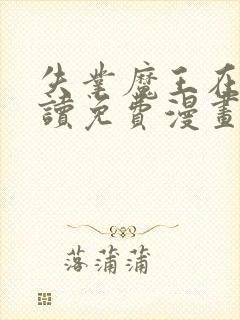 失業魔王在
讀免費漫畫
落蒲蒲